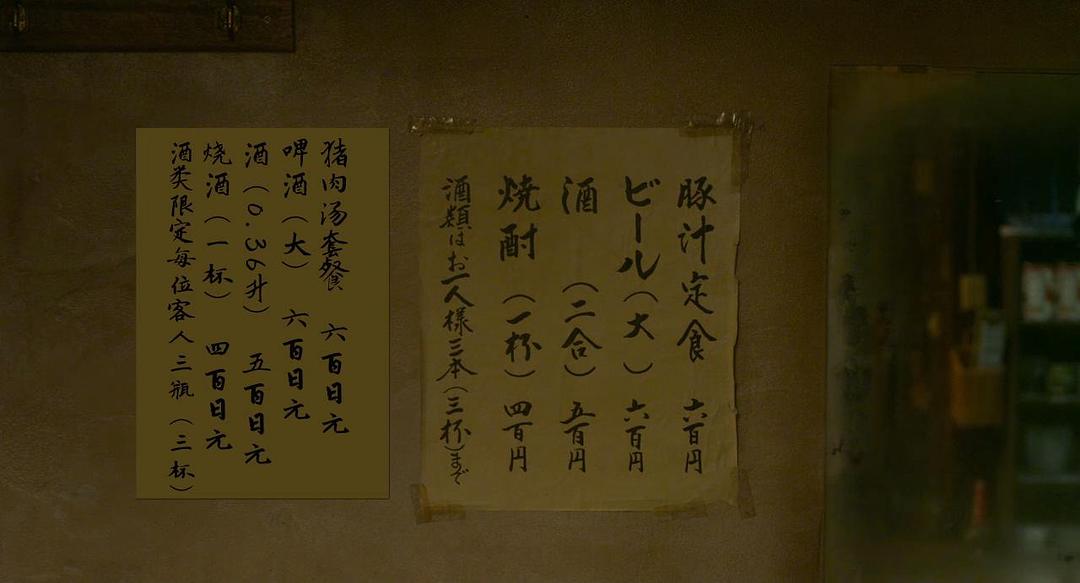 豚汁定食 六百円
ビール(大) 六百円
酒 (二合) 五百円
焼酎 (一杯) 四百円
酒類はお一人様三本(三杯)まで
猪肉汤套餐 六百日元
啤酒(大) 六百日元
酒(0.36升) 五百日元
烧酒(一杯) 四百日元
酒类限定每位客人三瓶(三杯)